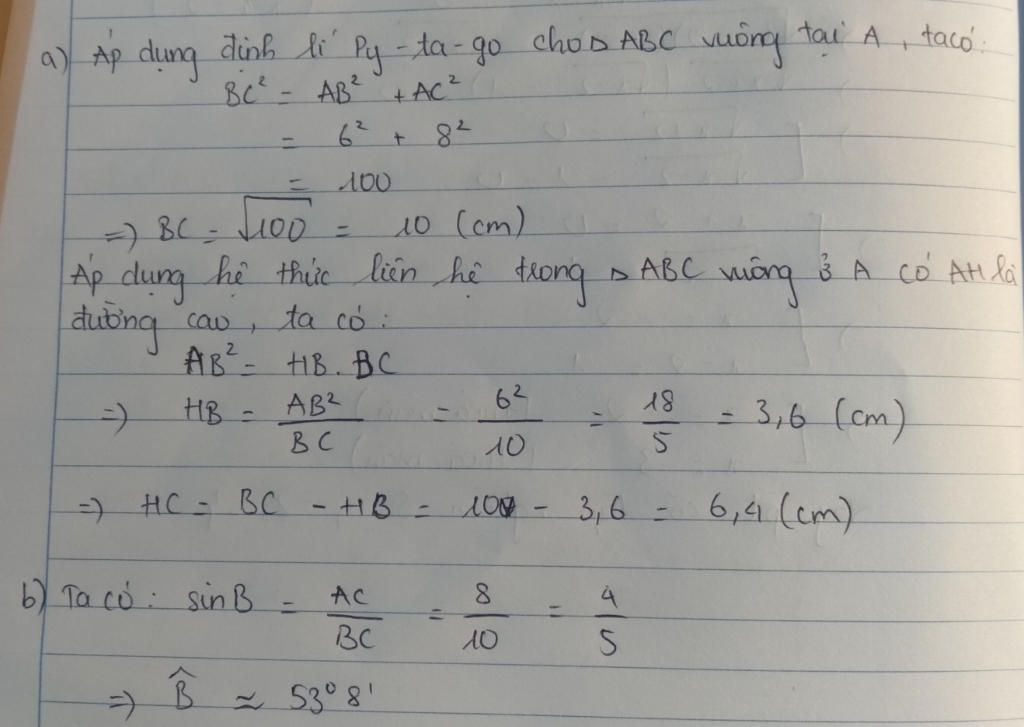 a) Áp dụng định lí Py-ta-go cho △ABC vuông tại A, ta có:
BC² = AB² + AC²
= 6² + 8²
= 100
=> BC = √100 = 10 (cm)
Áp dụng hệ thức liên hệ trong △ABC vuông ở A có AH là
đường cao, ta có:
AB² = HB. BC
=> HB = AB²/BC = 6²/10 = 18/5 = 3,6 (cm)
=> HC = BC - HB = 10 - 3,6 = 6,4 (cm)
b) Ta có: sinB = AC/BC = 8/10 = 4/5
=> B̂ ≈ 53° 8'